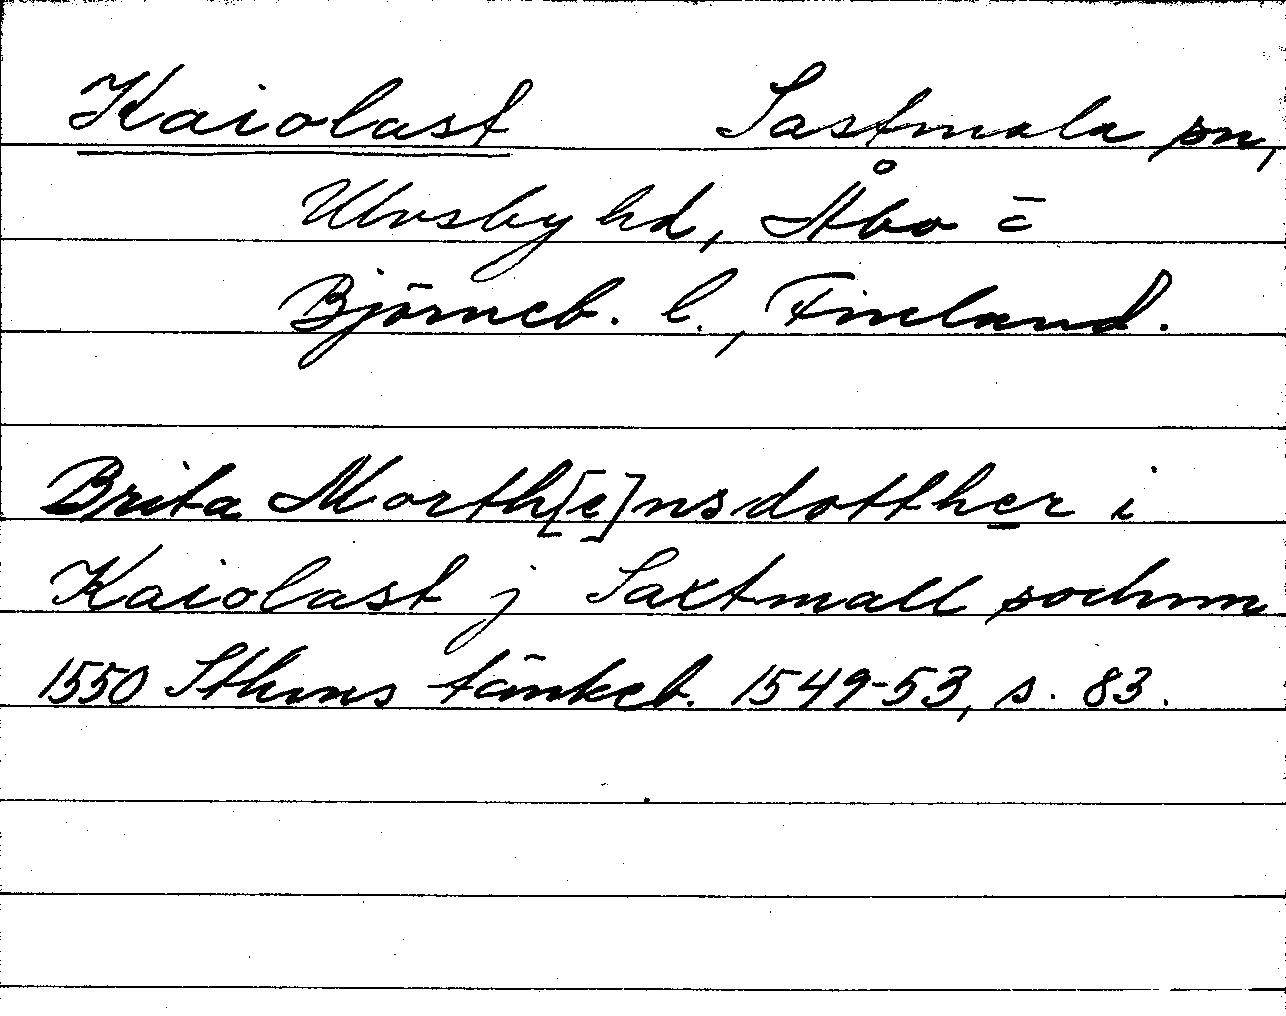 Kaiolast Sastmala sn,
Ulvsby hd, Åbo o
Björneb. l., Finland.
Brita Morth[e]nsdotther i
Kaiolast j Saxtmall sochnn
1550 Sthms tänkeb. 1549-53, s. 83.